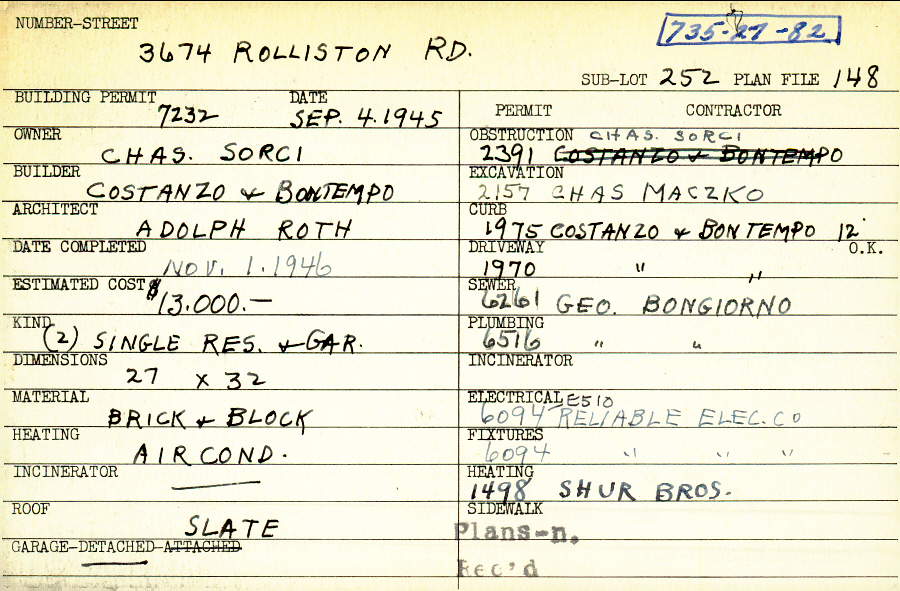 NUMBER-STREET
3674 ROLLISTON RD.
735-27-82
SUB-LOT 252 PLAN FILE 148
BUILDING PERMIT 7232
DATE SEP. 4.1945
OWNER
CHAS. SORCI
BUILDER
COSTANZO & BONTEMPO
ARCHITECT
ADOLPH ROTH
DATE COMPLETED
NOV. 1.1946
ESTIMATED COST $13.000.—
KIND
(2) SINGLE RES. & GAR.
DIMENSIONS
27 x 32
MATERIAL
BRICK & BLOCK
HEATING
AIR COND.
INCINERATOR
ROOF
SLATE
GARAGE-DETACHED-ATTACHED
PERMIT CONTRACTOR
OBSTRUCTION CHAS. SORCI
2391 COSTANZO & BONTEMPO
EXCAVATION
2157 CHAS MACZKO
CURB
1975 COSTANZO & BONTEMPO 12'
DRIVEWAY O.K.
1970 " "
SEWER
6261 GEO. BONGIORNO
PLUMBING
6516 " "
INCINERATOR
ELECTRICAL E510
6094 RELIABLE ELEC. CO
FIXTURES
6094 " " "
HEATING
1498 SHUR BROS.
SIDEWALK
Plans-n.
Rec'd